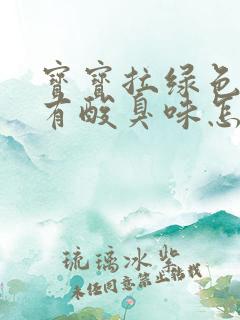 宝宝拉绿色
有酸臭味怎
琉璃冰紫
未经同意禁止转载